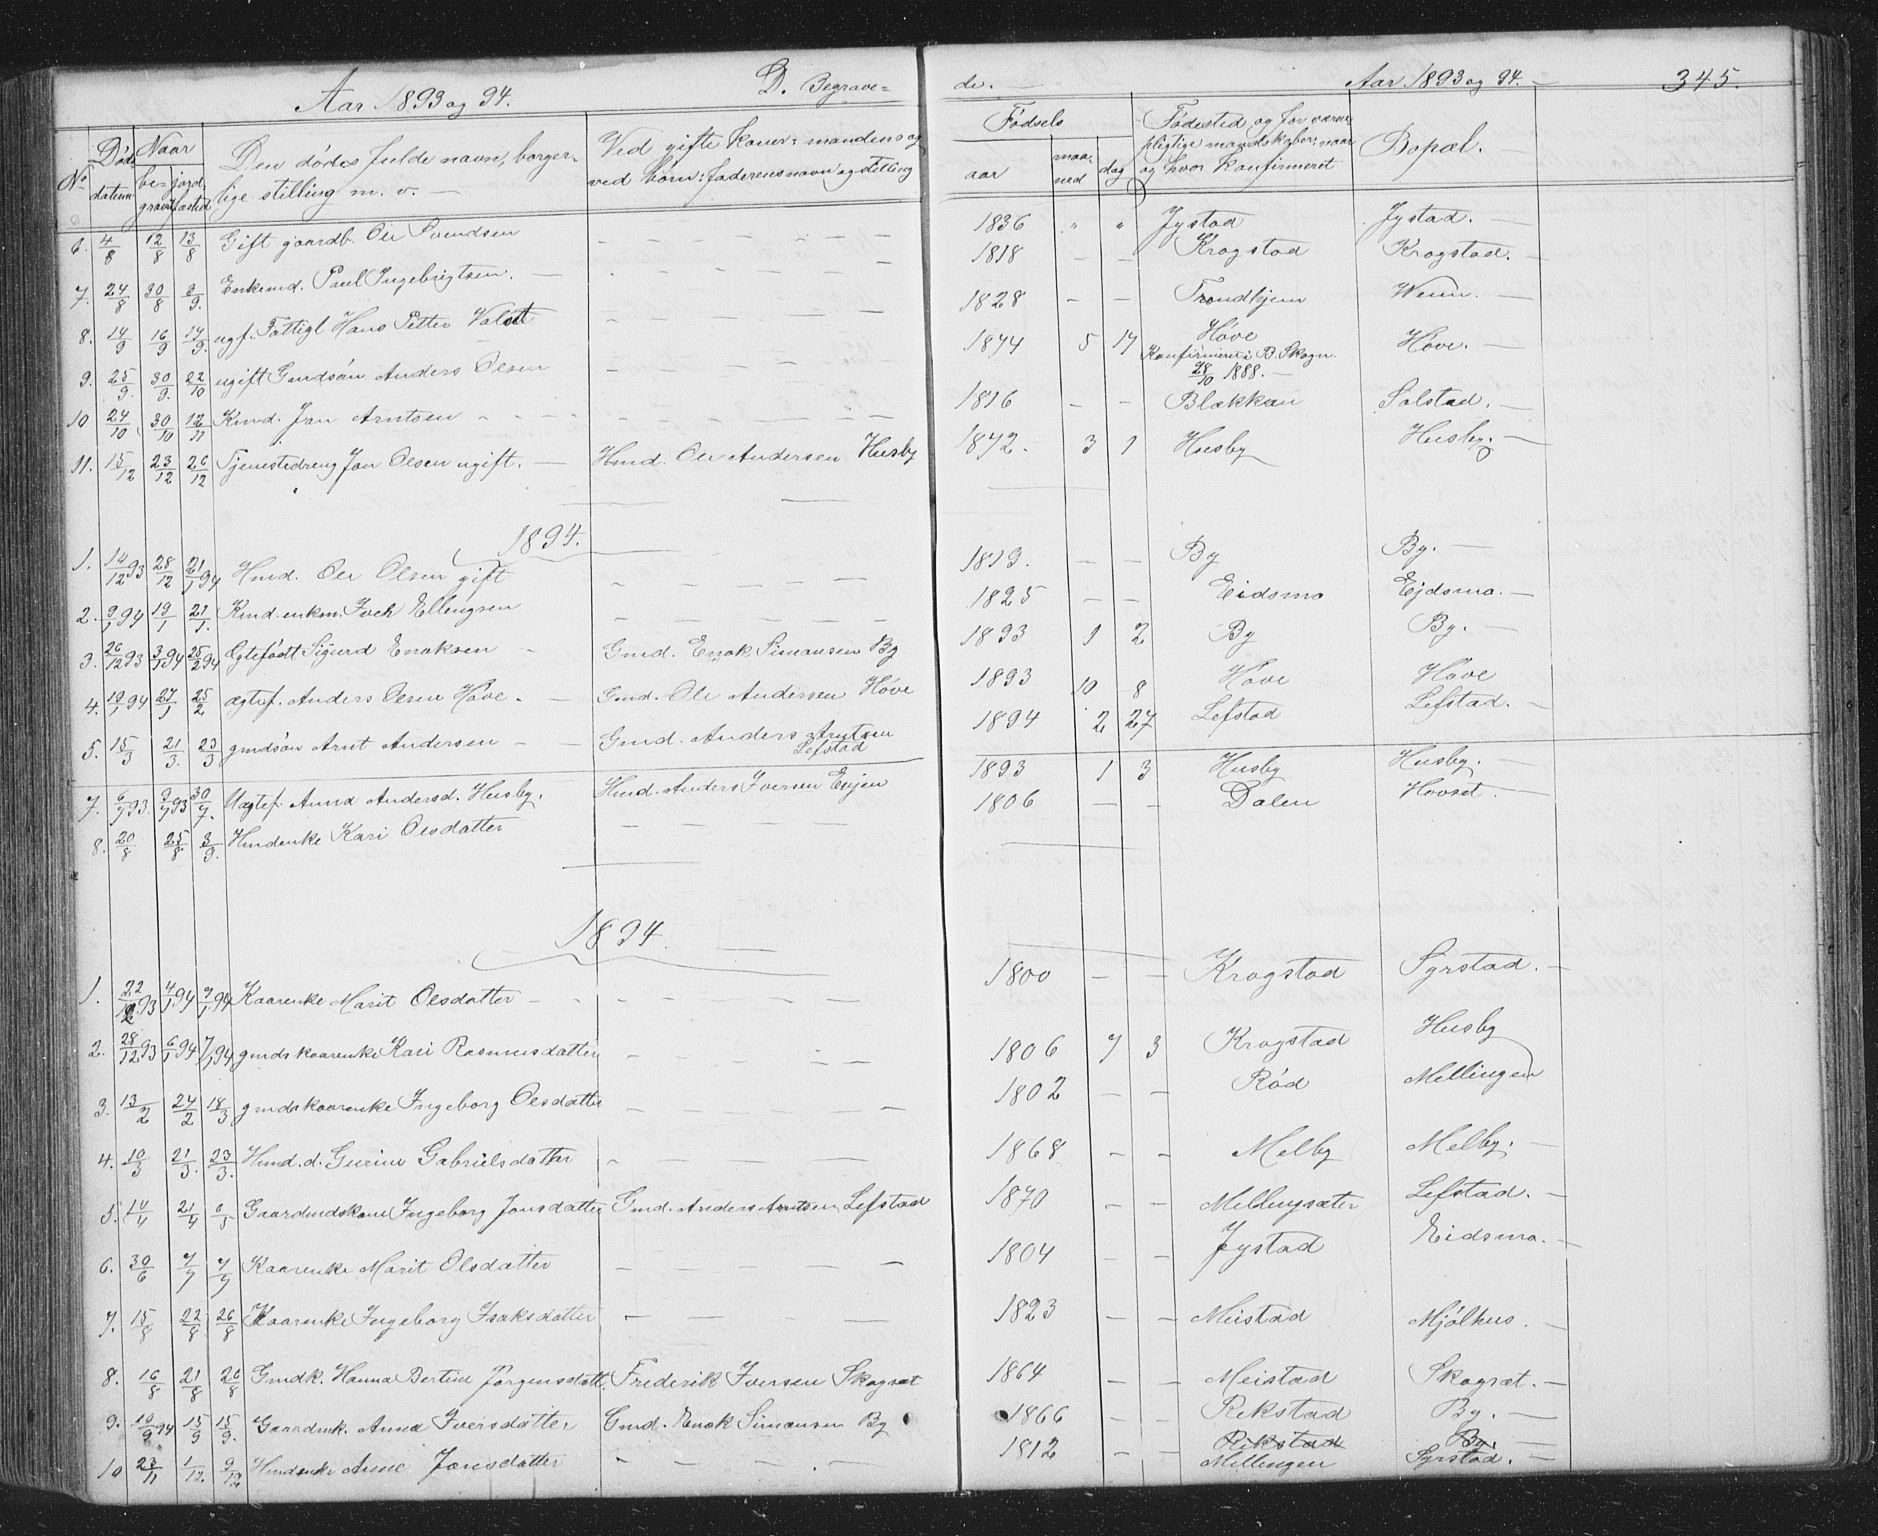 Aar 1893 og 94. D. Begrave= de. — Aar 1893 og 94. — 345.
No Døds datum Naar be= gravet jord fæstet Den dødes fulde navn, borger= lige stilling m. v. — Ved gifte koner: mandens og ved børn: faderens navn og stilling Fødsels aar maa= ned dag Fødested og for værne pligtige mandskaber: naar og hvor konfirmeret Bopæl. —
6. 4/8 12/8 13/8 Gift gaardb. Ole Svendsen — — — — 1836 " " Jystad Jystad. —
7. 24/8 30/8 3/9. Enkemd. Paul Ingebrigtsen. — 1818 — — Krogstad Krogstad. —
8. 14/9 16/9 17/9. ugf. Fattigl Hans Petter Valset 1828 — — Trondhjem Wenn. —
9. 25/9. 30/9. 22/10 ugift Gmdsøn Anders Olsen 1874 5 17 Høve Høve. —
Konfirmeret i B. Skogn.
28/10 1888. —
10 24/10 30/10 12/11 Kmd. Jon Arntsen 1816 — — Blækkan Solstad. —
11. 15/12 23/12 26/12 Tjenestedreng Jon Olsen ugift. — Hmd. Ole Andersen Husby 1872. 3 1 Husby Husby. —
1894.
1. 14/12 93 28/12 21/1 94 Hmd. Ole Olsen gift 1819. — — By By. —
2. 9/1 94 19/1 21/1. Kmd. enkem. Ivek Ellingsen 1825 — — Eidsmo Ejdsmo. —
3. 26/12 93 3/1 94 25/2 94 Ægtefødt Sigurd Enoksen — Gmd. Enok Simonsen By 1893 1 2 By By. —
4. 19/1 94 27/1 25/2 ægtef. Anders Olsen Høve. — Gmd. Ole Andersen Høve 1893 10 8 Høve Høve
5. 15/3 21/3. 23/3 gmdsøn Arnt Andersen — Gmd. Anders Arntsen Lefstad 1894 2 27 Lefstad Lefstad. —
7. 6/7 93. 9/7 93 30/7. Uægtef. Anna Andersd. Husby. Hmd. Anders Iversen Eujen 1893 1 3 Husby Husby. —
8. 20/8 25/8 3/9. Hmdenke Kari Olsdatter — — — 1806 — — Dalen Hovset. —
1894.
1. 22/12 93 4/1 94 7/1 94 Kaarenke Marit Olsdatter — 1800 — — Krogstad Syrstad. —
2. 28/12 93 6/1 94 7/1 94 gmdskaarenke Kari Rasmusdatter 1806 7 3 Krogstad Husby
3. 13/2 24/2 18/3 gmdskaarenke Ingeborg Olsdatter 1802 — — Rød Mellingen
4. 10/3 21/3. 23/3. Hmd. d. Gurine Gabrielsdatter 1868 — — Melby Melby. —
5. 21/4 Gaardmdskone Ingeborg Jonsdatter Gmd. Anders Arntsen Lefstad 1870 — — Mellingsæter Lefstad. —
6. 30/6 7/7 7/7 Kaarenke Marit Olsdatter — — — — 1804 — — Jystad Eidsmo. —
7. 15/8 22/8 26/8 Kaarenke Ingeborg Isaksdatter — — — — 1823 — — Meistad Mjølhus. —
8. 16/8 21/8 26/8 Gmdk. Hanna Bertine Jørgensdatt. Frederik Iversen Skogset 1864 — — Meistad Skogset. —
9. 10/9 94 15/9 15/9. Gaardmk. Anna Iversdatter Gmd. Enok Simonsen By 1866 — Rekstad By. —
Rekstad By.
10 23/11 1/12. 9/12 Hmdenke Anne Jonsdatter — — — — 1812 — — Mellingen Syrstad. —